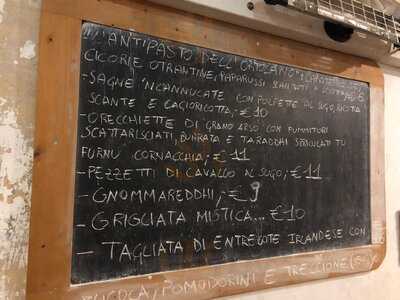 "ANTIPASTO DELL'ORTOLANO"
CICORIE OTRANTINE, PAPARUSSI
- SAGNE 'NCANNUCATE CON POLPETTE AL SUGO, RICOTA
SCANTE E CACIORICOTTA; €10
- ORECCHIETTE DI GRANO ARSO CON PUMMITORI
SCATTARISCIATI, BURRATA E TARADDHI TU
FURNU CORNACCHIA; €11
- PEZZETTI DI CAVALLO AL SUGO; €11
- GNOMMAREDDHI; €9
- GRIGLIATA MISTICA... €10
- TAGLIATA DI ENTRECOTE IRLANDESE CON
RUCOLA, POMODORINI E TRECCIONE